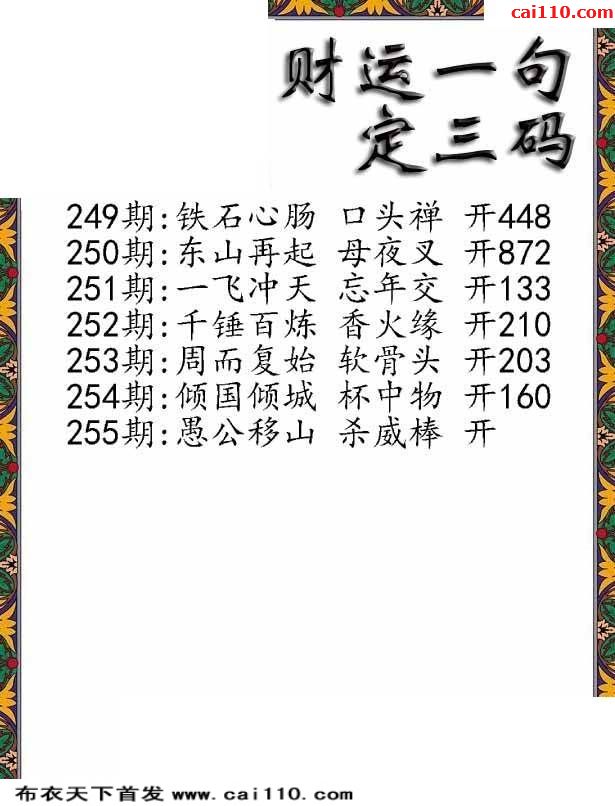 cai110.com
财运一句
定三码
249期:铁石心肠 口头禅 开448
250期:东山再起 母夜叉 开872
251期:一飞冲天 忘年交 开133
252期:千锤百炼 香火缘 开210
253期:周而复始 软骨头 开203
254期:倾国倾城 杯中物 开160
255期:愚公移山 杀威棒 开
布衣天下首发 www.cai110.com